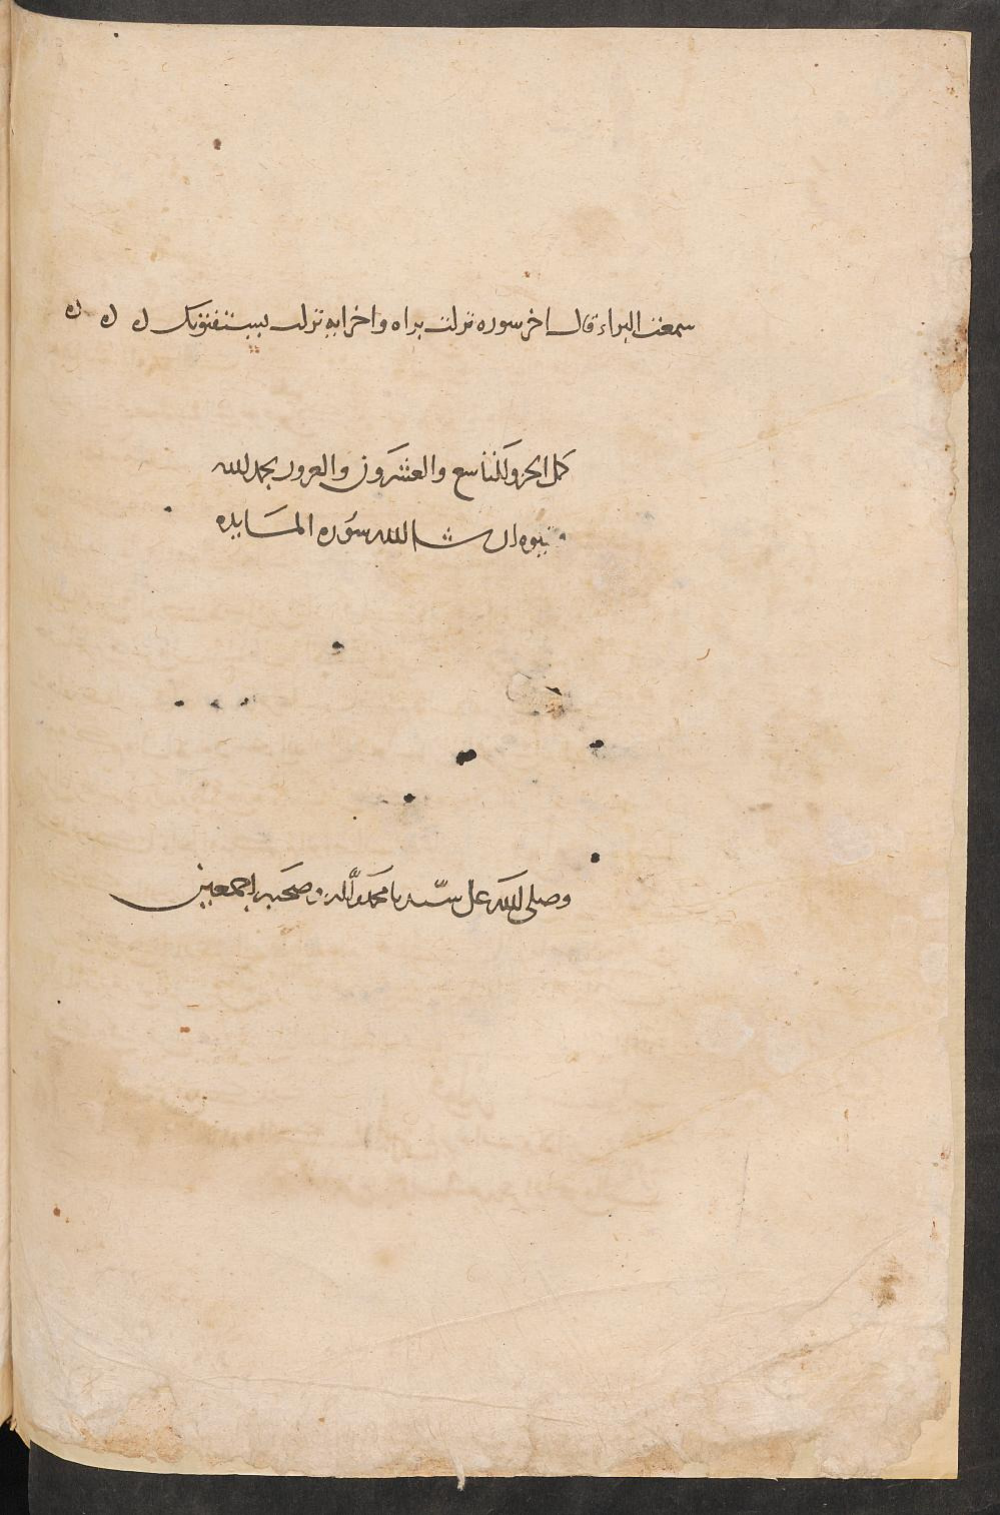 سمعت البراء قال اخر سوره نزلت براه واخر ايه نزلت يستفتونك ه ه ه
كمل الجزو التاسع والعشرون والعرور بحمد الله
يتلوه ان شا الله سوره المايده
وصلى الله على سيدنا محمد واله وصحبه اجمعين